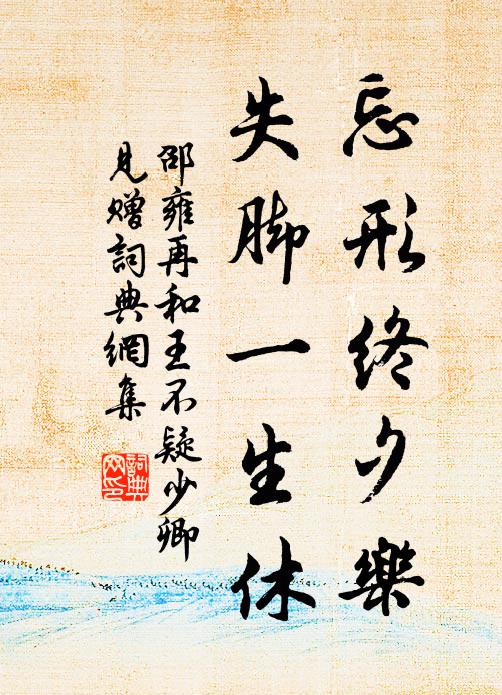 忘形终夕樂
失脚一生休
邵雍再和王不疑少卿
見贈詞典網集
詞典
网印